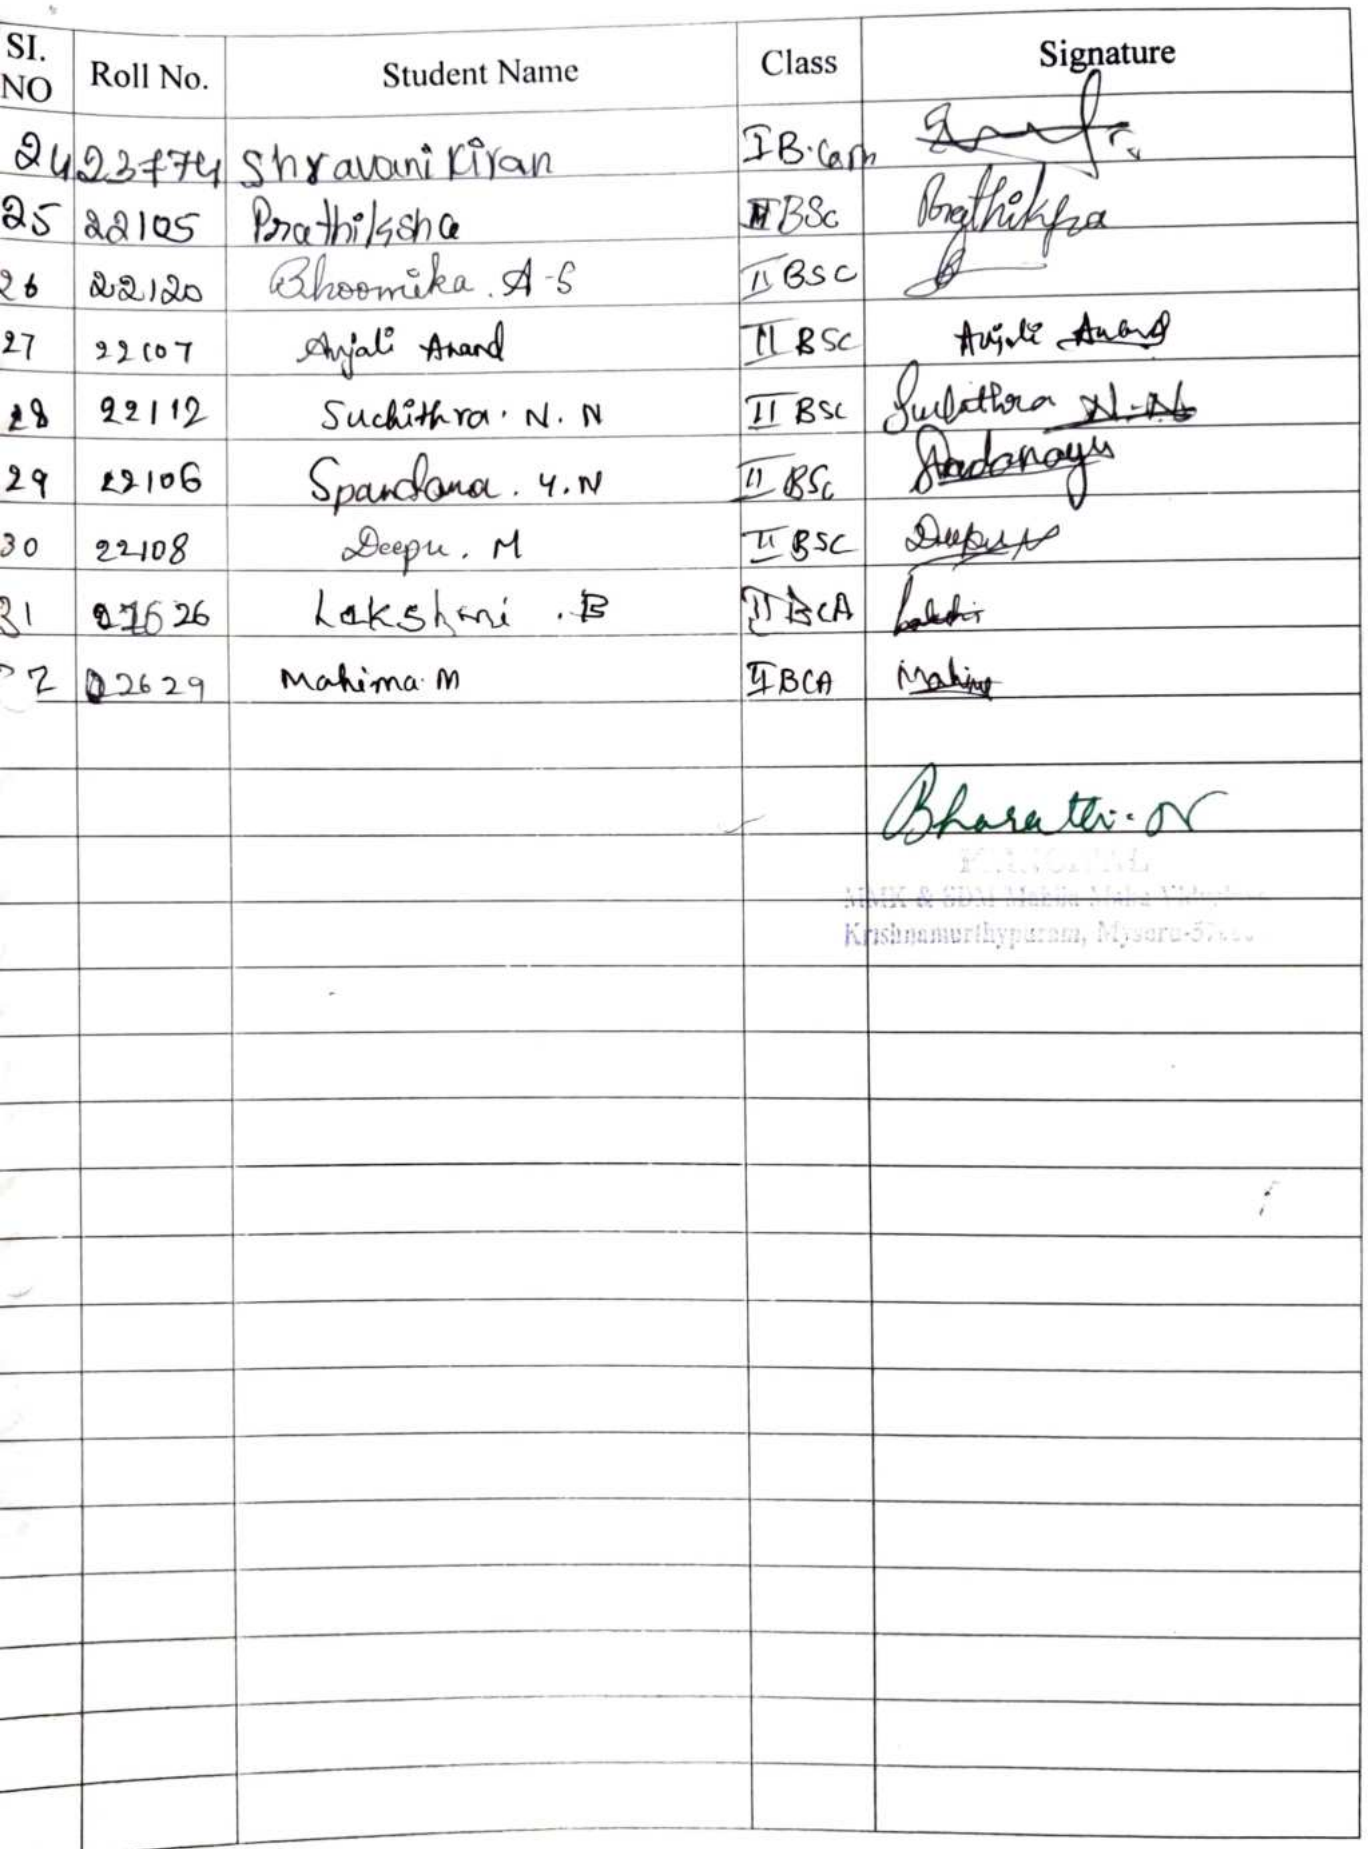 SI. NO Roll No. Student Name Class Signature
24 23774 Shravani Kiran I B.Com
25 22105 Prathiksha II BSc Prathiksha
26 22120 Bhoomika. A-S II BSC
27 22107 Anjali Anand II BSC Anjali Anand
28 22112 Suchithra. N. N II BSC Suchithra N.N
29 22106 Spandana. Y. N II BSc
30 22108 Deepu. M II BSC Deepu
31 Lakshmi . B II BCA
32 22629 Mahima. M II BCA Mahima
Bharathi. N
PRINCIPAL
MMK & SDM Mahila Maha
Krishnamurthypuram, Mysuru-